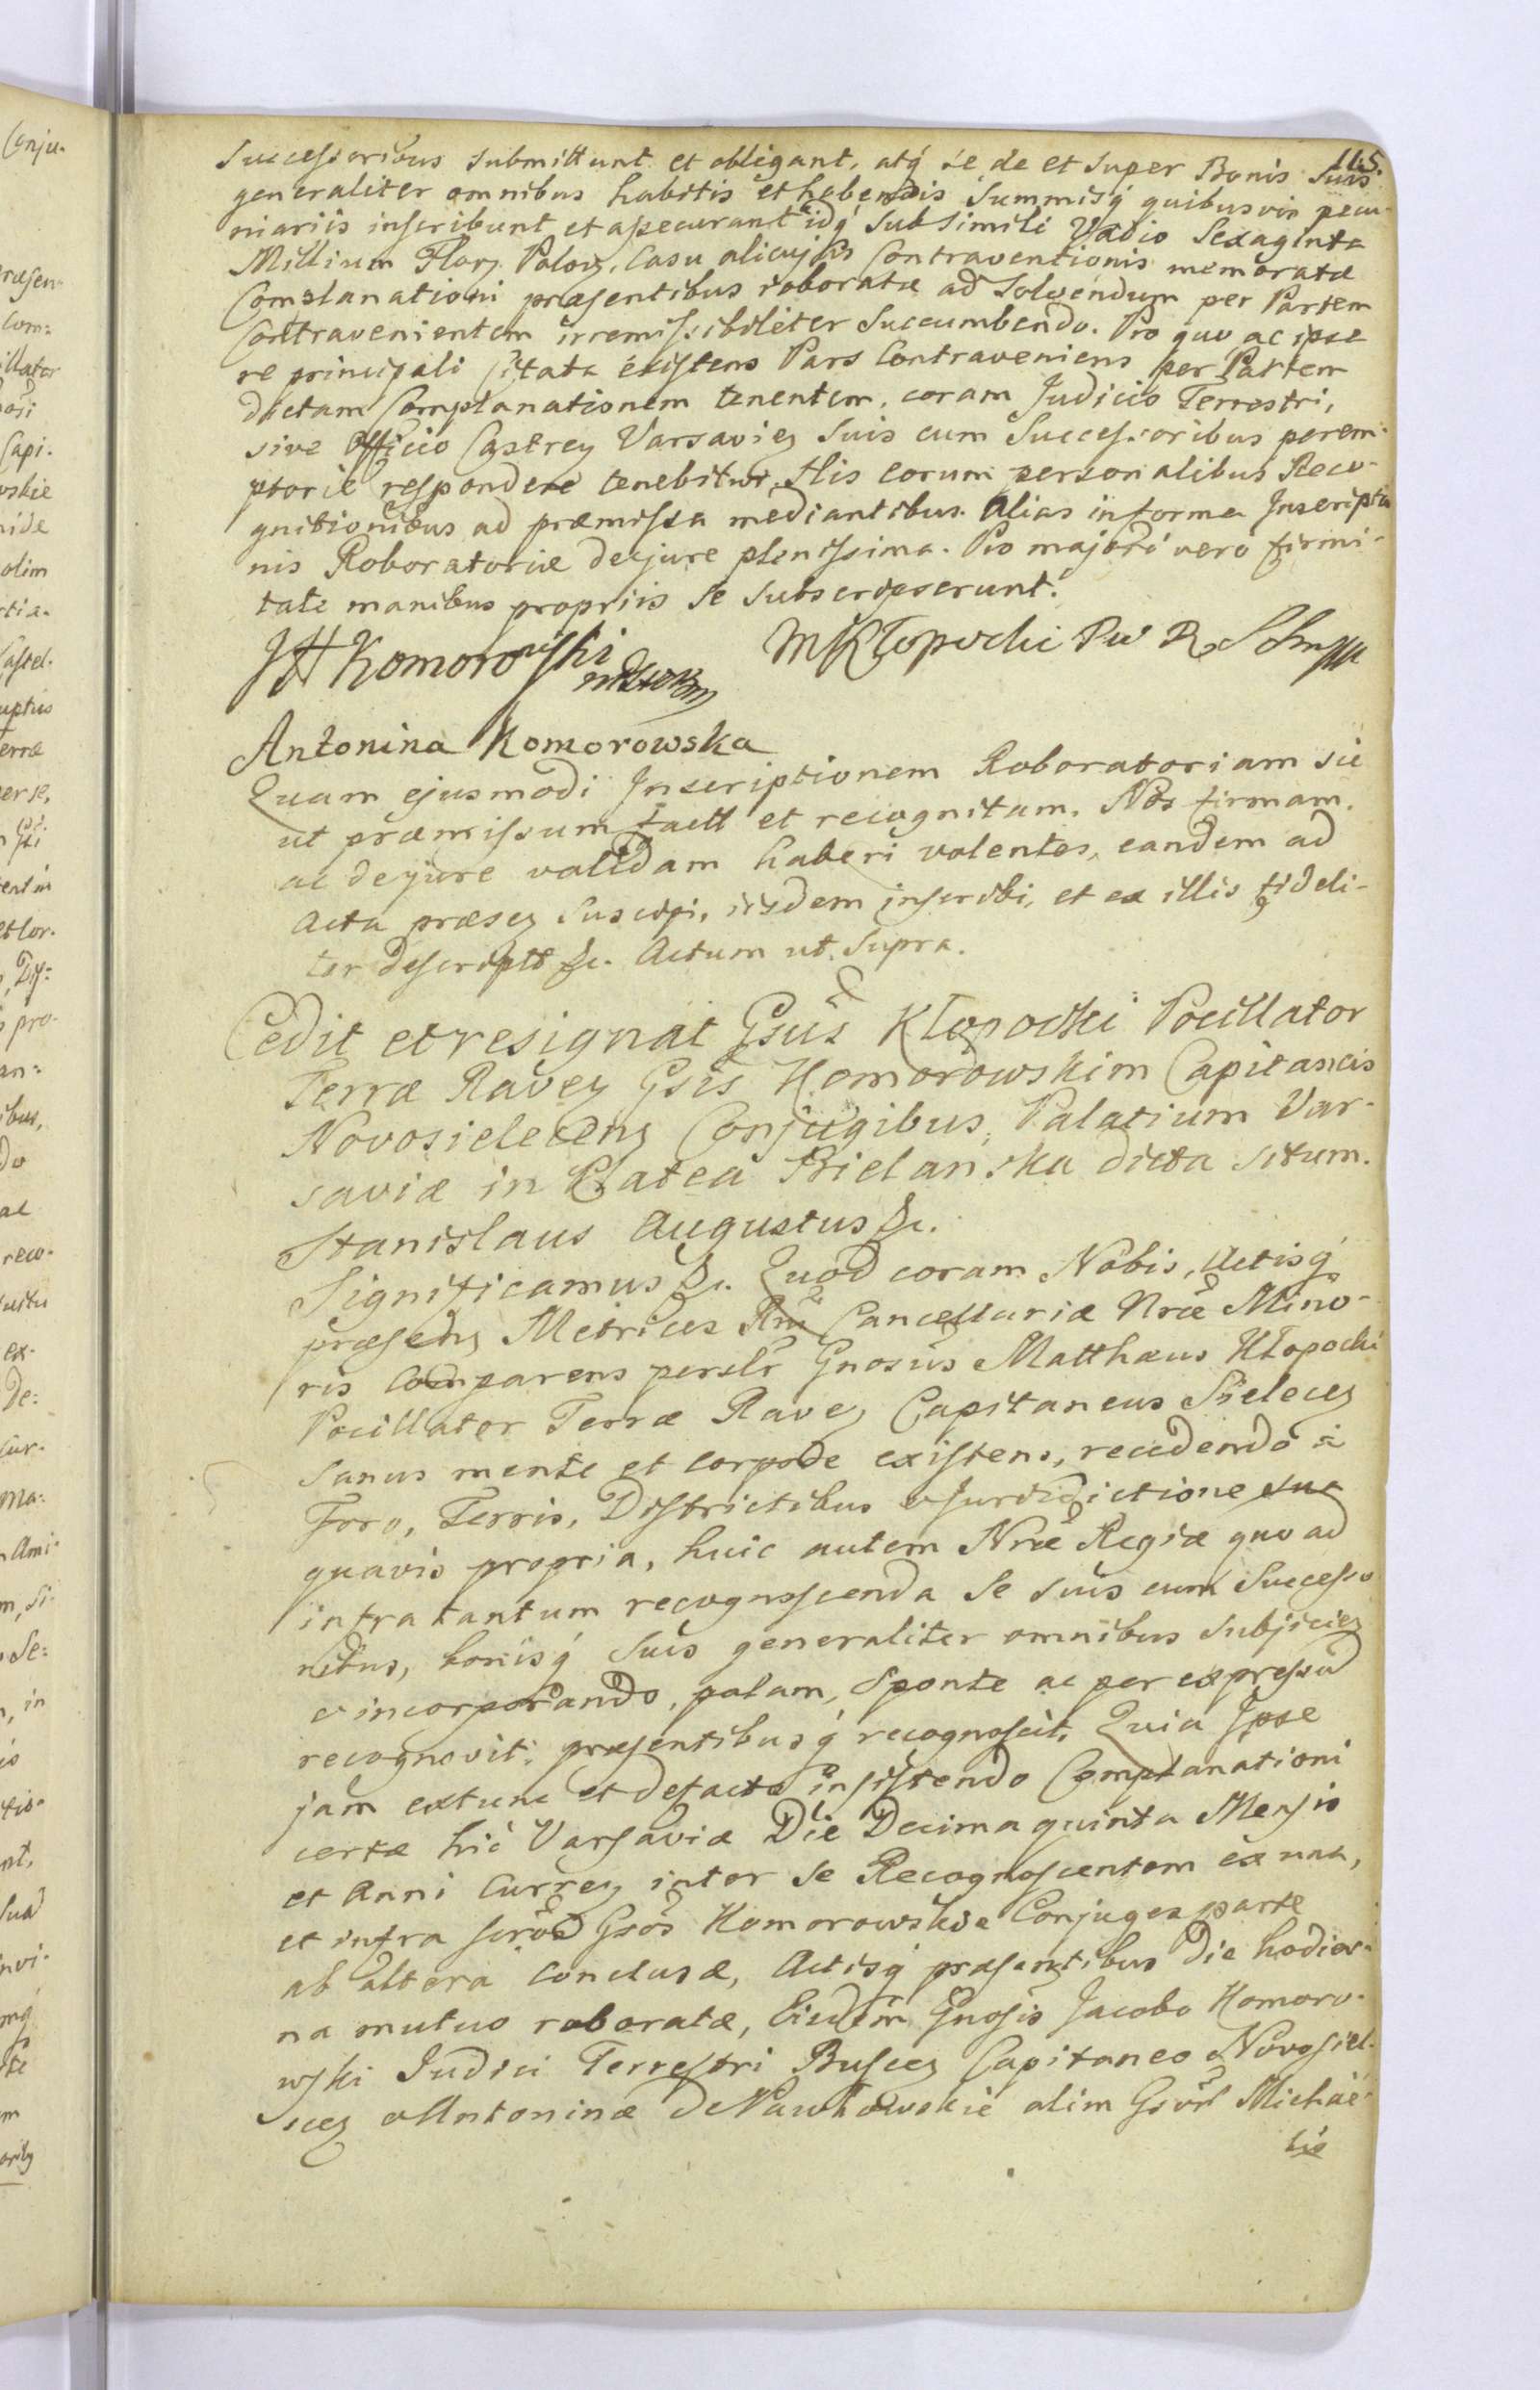 115.
Successoribus submittunt et obligant, atq́ se de et super Bonis suis
generaliter omnibus habitis et habendis Summisq́ quibusvis pecu-
niariis inscribunt et assecurant idq́ sub simili Vadio Sexaginta
Millium Flor. Polon. Casu alicujus Contraventionis memoratæ
Complanationi præsentibus roboratæ ad solvendum per Partem
Contravenientem irremissibiliter succumbendo. Pro quo ac ipsa
re principali Citata existens Pars Contraveniens per Partem
dictam Complanationem tenentem, coram Judicio Terrestri,
sive Officio Castren Varsavien suis cum Successoribus perem-
ptorie respondere tenebitur. His eorum personalibus Reco-
gnitionibus ad præmissa mediantibus. Alias in forma Inscriptio
nis Roboratoriæ de jure plenissima. Pro majori vero firmi-
tate manibus propriis se subscripserunt.
JH Komorowski
MKłopocki P W R S
Antonina Komorowska
Quam ejusmodi Inscriptionem Roboratoriam sic
ut præmissum factt et recognitam. Nos firmam.
ac de jure validam haberi volentes, eandem ad
Acta præsen suscipi, iisdem inscribi, et ex illis fideli-
ter descriptt &c. Actum ut Supra.
Cedit et resignat Gsus Kłopocki Pocillator
Terræ Raven Gsis Komorowskim Capitaneis
Novosielecens Conjugibus, Palatium Var-
saviæ in Platea Bielanska dicta situm.
Stanislaus Augustus &c.
Significamus &c. Quod coram Nobis, Actisq́
præsens Metrices Rni Cancellariæ Nræ Mino-
ris Comparens perslr Gnosus Matthæus Kłopocki
Pocillator Terræ Raven Capitaneus Sielecen
sanus mente et corpore existens, recedendo à
Foro, Terris, Districtibus et Jurisdictione sua
quavis propria, huic autem Nræ Regiæ quo ad
infra tantum recognoscenda se suis cum Successo
ribus, bonisq́ suis generaliter omnibus subjicien
et incorporando, palam, sponte ac per expressum
recognovit, præsentibusq́ recognoscit, Quia Ipse
jam extunc et de facto insistendo Complanationi
certæ hic Varsaviæ Die Decima quinta Mensis
et Anni Curren inter se Recognoscentem ex una,
et infra scrôs Gsôs Komorowskie Conjuges parte
ab altera conclusæ, Actisq́ præsentibus die hodier-
na mutuo roboratæ, Eisdem Gnosis Jacobo Komoro-
wski Judici Terrestri Buscen Capitaneo Novosiel-
cen et Antoninæ de Pawłowskie olim Gsôr Michaë-
lis